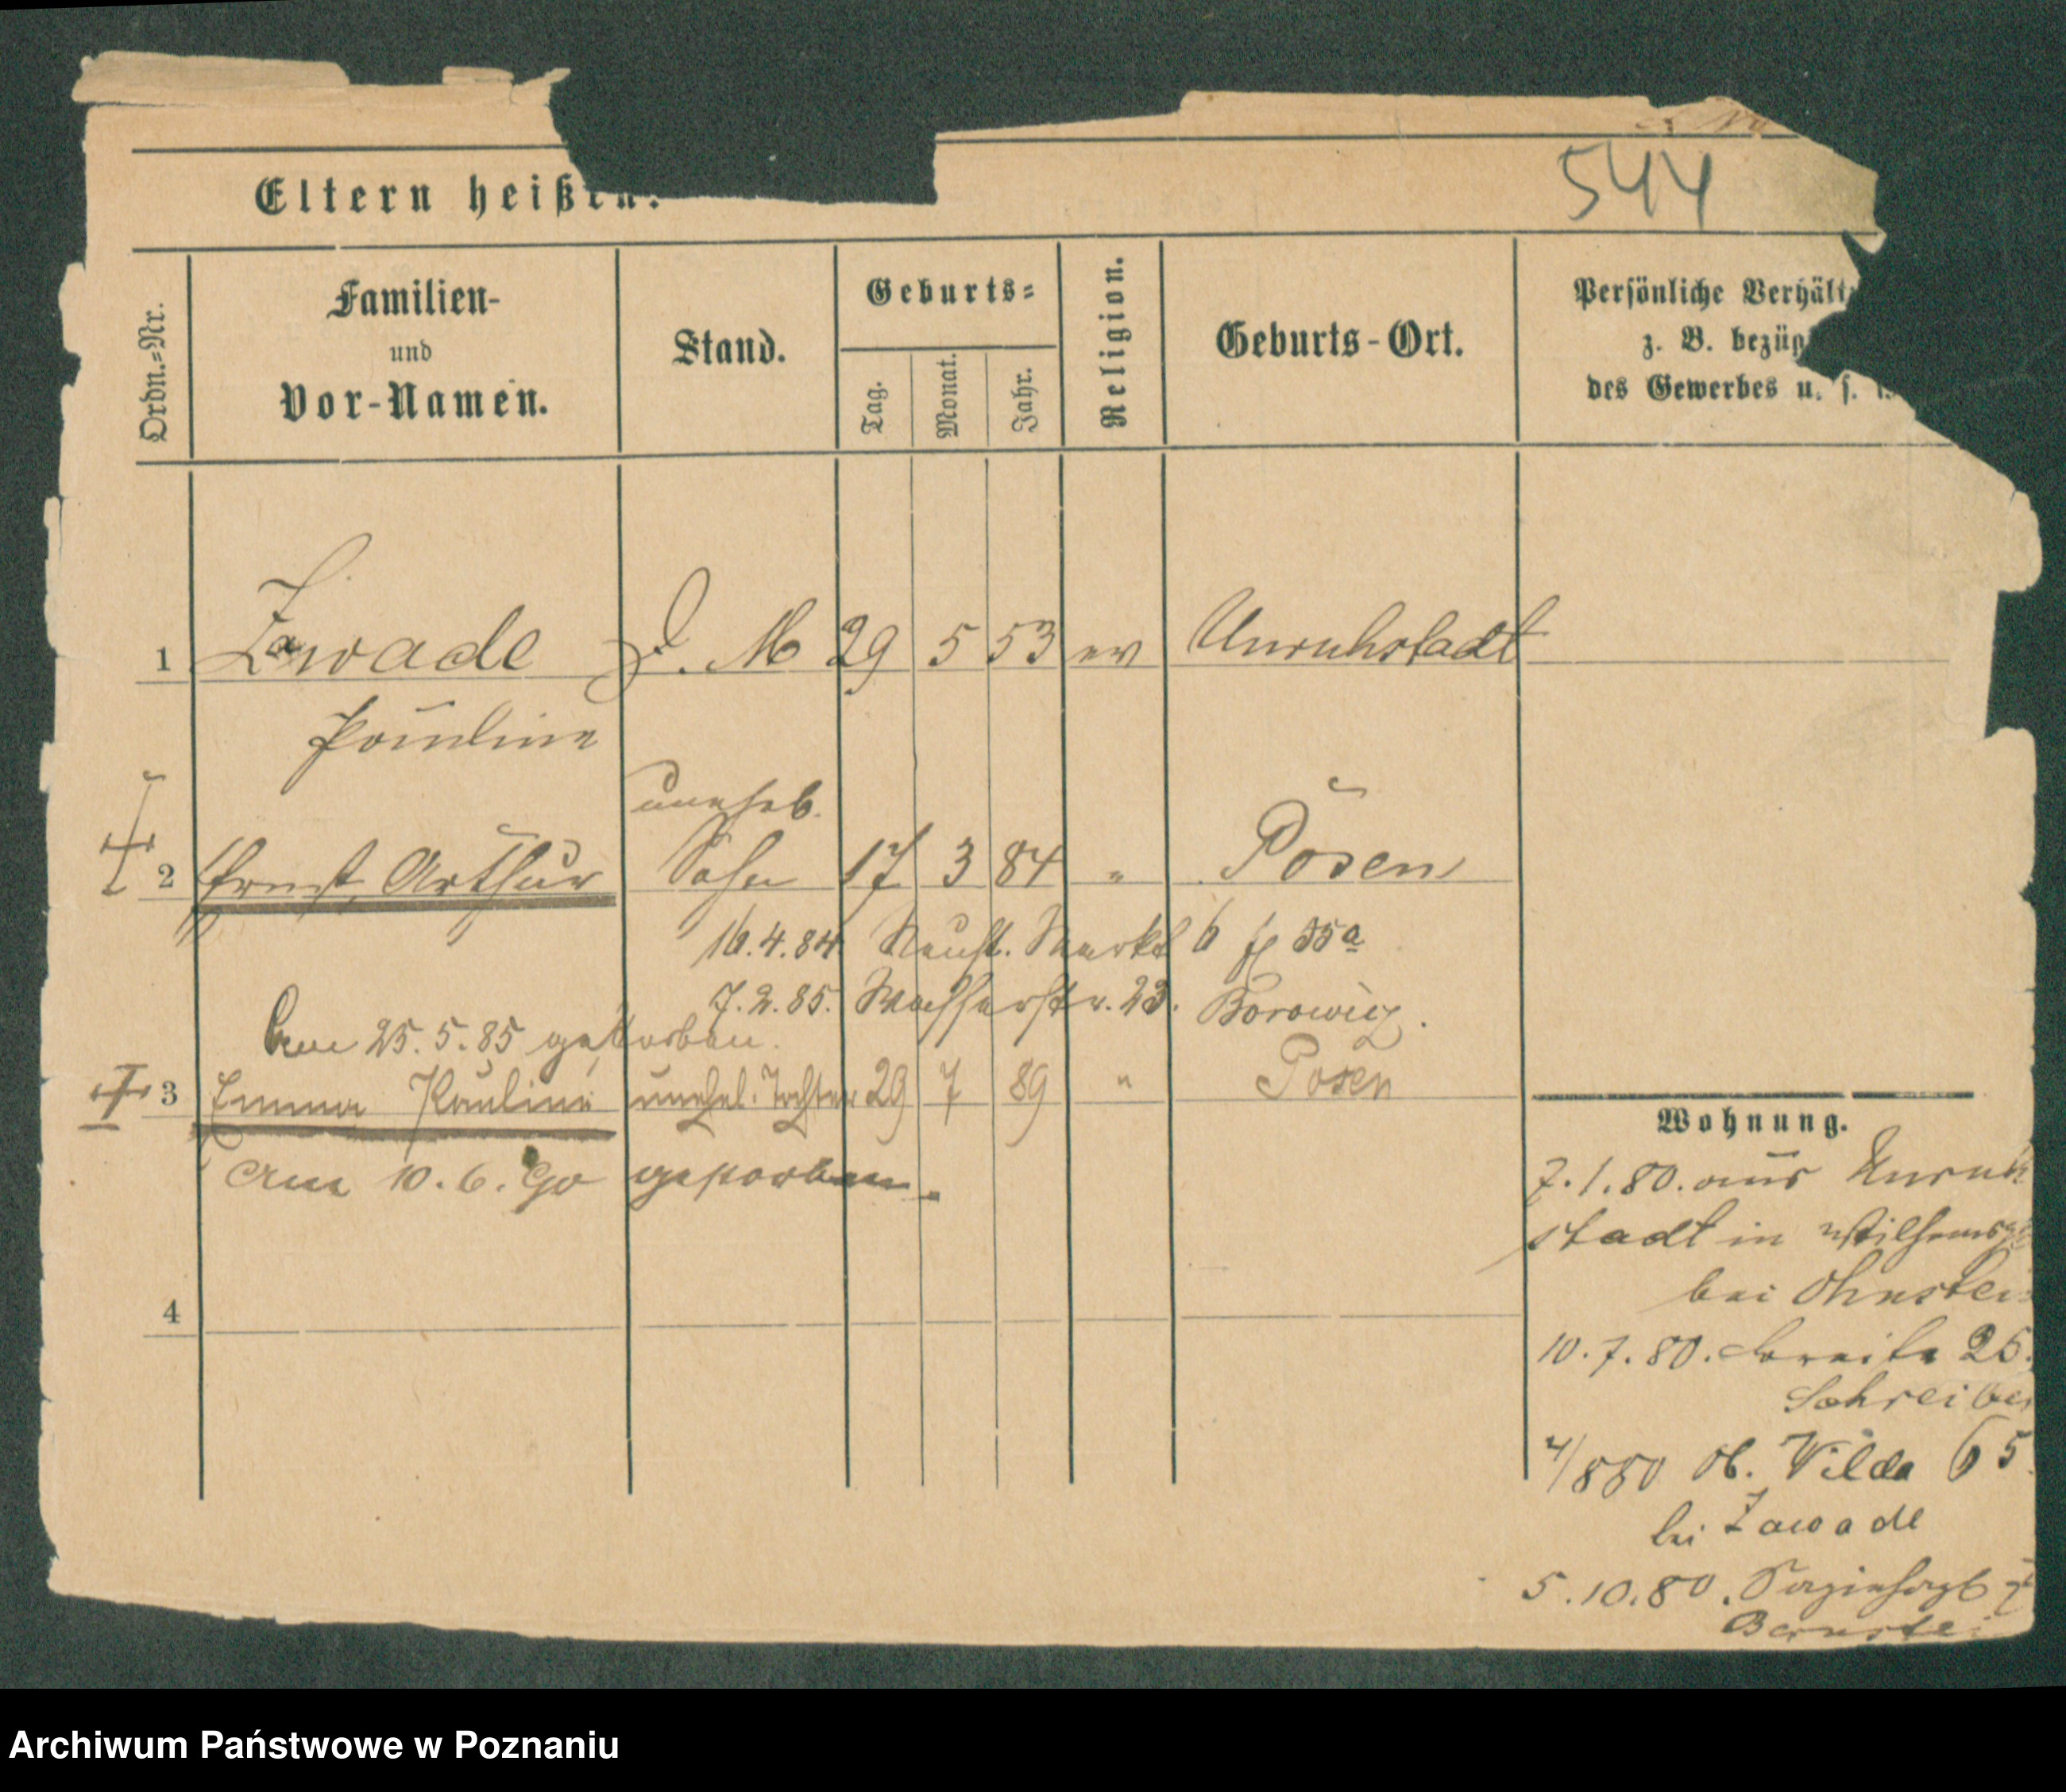 544
Eltern heißen:
Ordn.=Nr.
Familien-
und
Vor-Namen.
Stand.
Geburts=
Tag.
Monat.
Jahr.
Religion.
Geburts-Ort.
Persönliche Verhält
z. B. bezüg
des Gewerbes u. s.
1 Zawade D. M 29 5 53 ev Unruhstadt
Pauline
unehel.
2 Ernst Arthur Sohn 17 3 84 " Posen
16.4.84 Neust. Markt 6
7.2.85. Wasserstr. 23. Borowicz.
Am 25.5.85 gestorben.
3 Emma Pauline unehel. Tochter 29 7 89 " Posen
Am 10.6.90 gestorben.
4
Wohnung.
7.1.80. aus Unruh
stadt in Wilhelms
bei Ohnstei
10.7.80. Breite 26.
Schreiber
880 Ob. Wilda 65
bei Zawade
5.10.80.
Bernstei
Archiwum Państwowe w Poznaniu